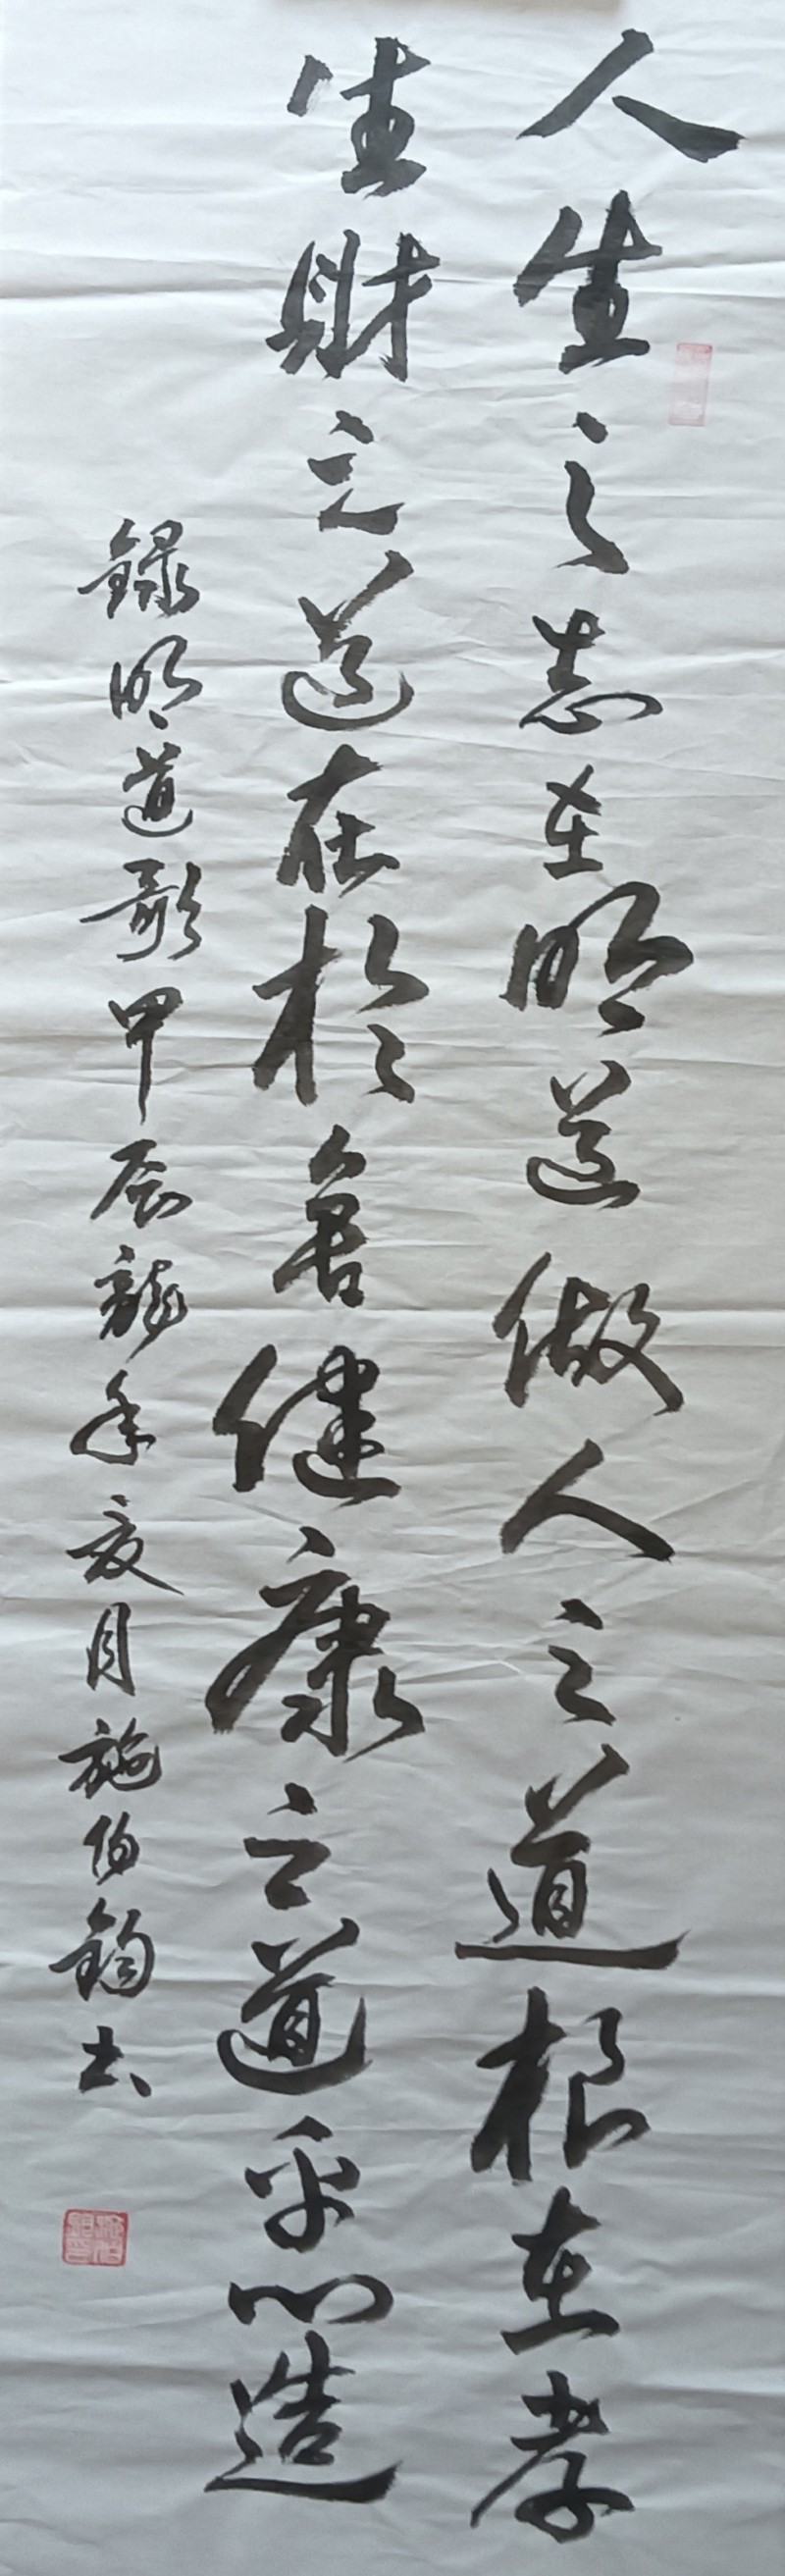 人生之志在明道做人之道根在孝
生財之道在於舍健康之道平心造
録明道歌甲辰龍年夏月施伯鈞书